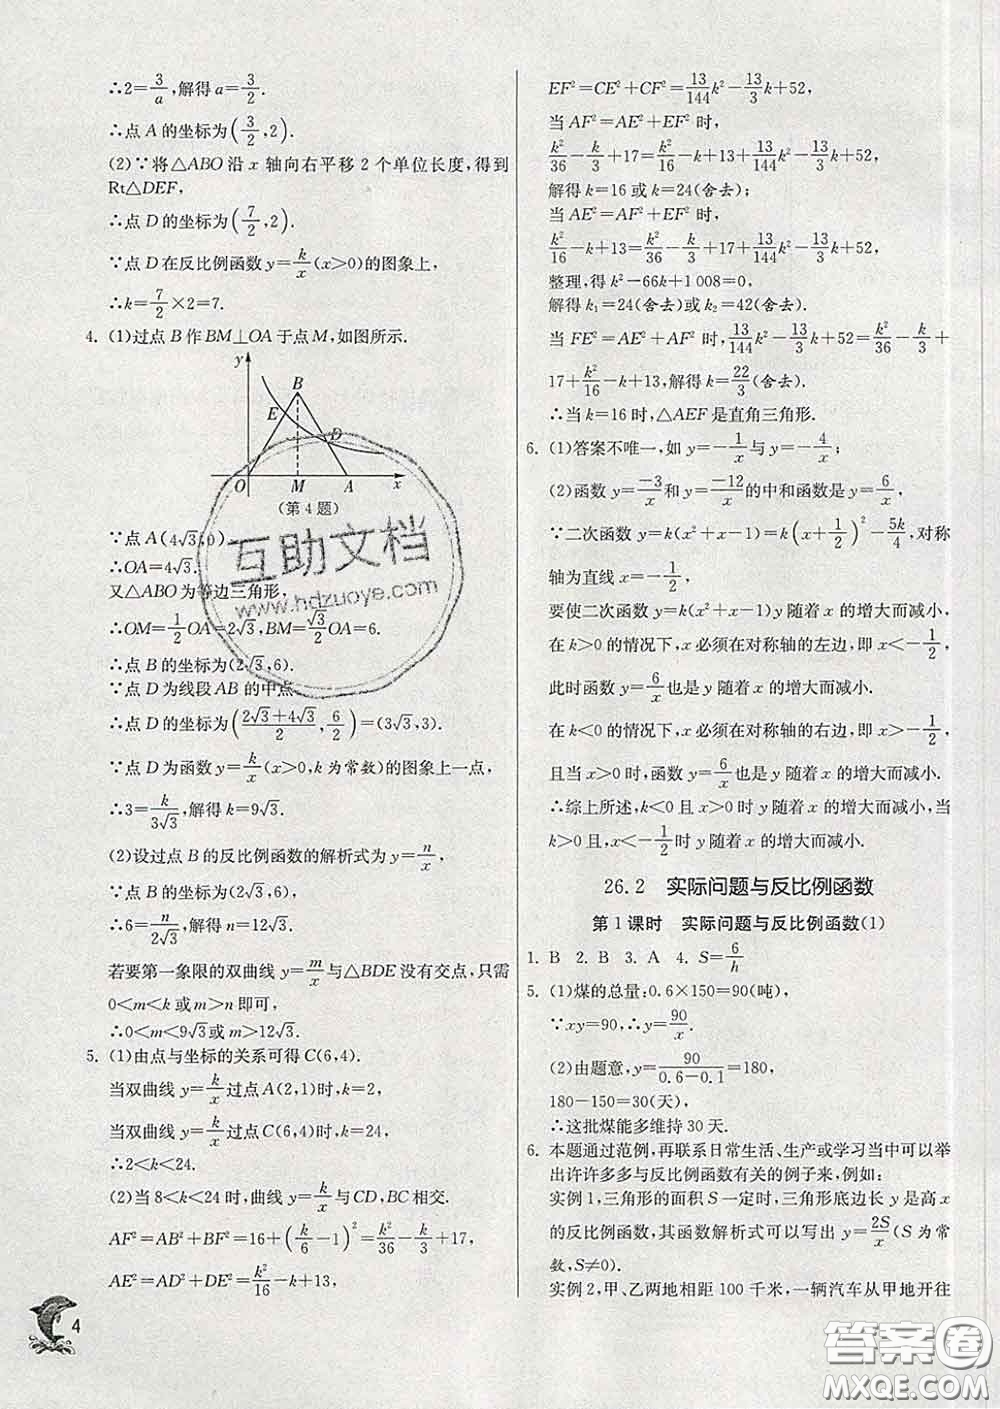 ∴2=3/a,解得 a=3/2.
∴点 A 的坐标为(3/2,2).
(2)∵将△ABO 沿 x 轴向右平移 2 个单位长度,得到
Rt△DEF,
∴点 D 的坐标为(7/2,2).
∵点 D 在反比例函数 y=k/x(x>0)的图象上,
∴k=7/2×2=7.
4. (1)过点 B 作 BM⊥OA 于点 M,如图所示.
y
B
E
D
O M A x
(第 4 题)
∵点 A(4√3,0),
∴OA=4√3.
又△ABO 为等边三角形,
∴OM=1/2OA=2√3,BM=√3/2OA=6.
∴点 B 的坐标为(2√3,6).
∵点 D 为线段 AB 的中点
∴点 D 的坐标为((2√3+4√3)/2,6/2)=(3√3,3).
∵点 D 为函数 y=k/x(x>0,k 为常数)的图象上一点,
∴3=k/3√3,解得 k=9√3.
(2)设过点 B 的反比例函数的解析式为 y=n/x,
∵点 B 的坐标为(2√3,6),
∴6=n/2√3,解得 n=12√3.
若要第一象限的双曲线 y=m/x与△BDE 没有交点,只需
0<m<k 或 m>n 即可,
∴0<m<9√3或 m>12√3.
5. (1)由点与坐标的关系可得 C(6,4).
当双曲线 y=k/x过点 A(2,1)时,k=2,
当双曲线 y=k/x过点 C(6,4)时,k=24,
∴2<k<24.
(2)当 8<k<24 时,曲线 y=k/x与 CD,BC 相交.
AF²=AB²+BF²=16+(k/6−1)²=k²/36−k/3+17,
AE²=AD²+DE²=k²/16−k+13,
4
EF²=CE²+CF²=13/144k²−13/3k+52,
当 AF²=AE²+EF² 时,
k²/36−k/3+17=k²/16−k+13+13/144k²−13/3k+52,
解得 k=16 或 k=24(舍去);
当 AE²=AF²+EF² 时,
k²/16−k+13=k²/36−k/3+17+13/144k²−13/3k+52,
整理,得 k²−66k+1 008=0,
解得 k₁=24(舍去)或 k₂=42(舍去).
当 FE²=AE²+AF² 时,13/144k²−13/3k+52=k²/36−k/3+
17+k²/16−k+13,解得 k=22/3(舍去).
∴当 k=16 时,△AEF 是直角三角形.
6. (1)答案不唯一,如 y=−1/x与 y=−4/x;
(2)函数 y=−3/x和 y=−12/x的中和函数是 y=6/x,
∵二次函数 y=k(x²+x−1)=k(x+1/2)²−5k/4,对称
轴为直线 x=−1/2,
要使二次函数 y=k(x²+x−1)y 随着 x 的增大而减小,
在 k>0 的情况下,x 必须在对称轴的左边,即 x<−1/2,
此时函数 y=6/x也是 y 随着 x 的增大而减小.
在 k<0 的情况下,x 必须在对称轴的右边,即 x>−1/2,
且当 x>0 时,函数 y=6/x也是 y 随着 x 的增大而减小.
∴综上所述,k<0 且 x>0 时 y 随着 x 的增大而减小,当
k>0 且,x<−1/2时 y 随着 x 的增大而减小.
26.2 实际问题与反比例函数
第 1 课时 实际问题与反比例函数(1)
1. B 2. B 3. A 4. S=6/h
5. (1)煤的总量:0.6×150=90(吨),
∵xy=90,∴y=90/x.
(2)由题意,90/(0.6−0.1)=180,
180−150=30(天),
∴这批煤能多维持 30 天.
6. 本题通过范例,再联系日常生活、生产或学习当中可以举
出许许多多与反比例函数有关的例子来,例如:
实例 1,三角形的面积 S 一定时,三角形底边长 y 是高 x
的反比例函数,其函数解析式可以写出 y=2S/x(S 为常
数,S≠0).
实例 2,甲、乙两地相距 100 千米,一辆汽车从甲地开往
互助文档
www.hdzuoye.com
答案圈
MXQE.COM